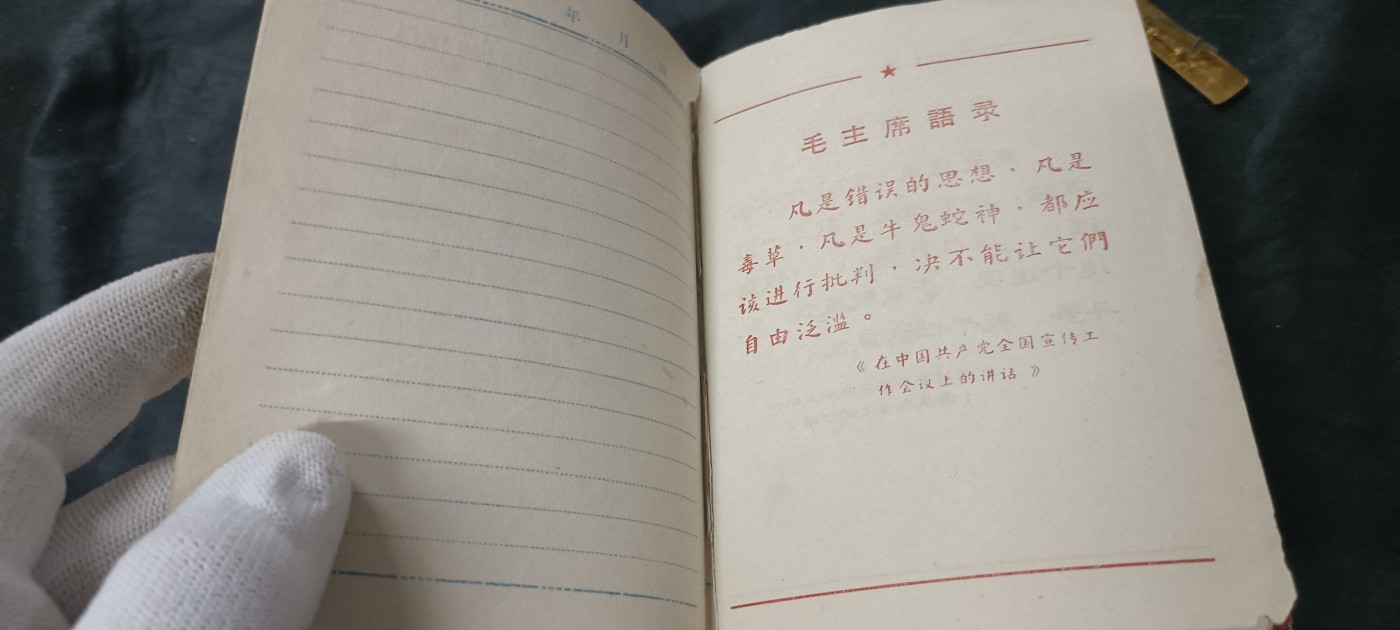 年 月 日
毛主席語录
凡是错误的思想，凡是
毒草，凡是牛鬼蛇神，都应
该进行批判，决不能让它們
自由泛滥。
《在中国共产党全国宣传工
作会议上的讲话》